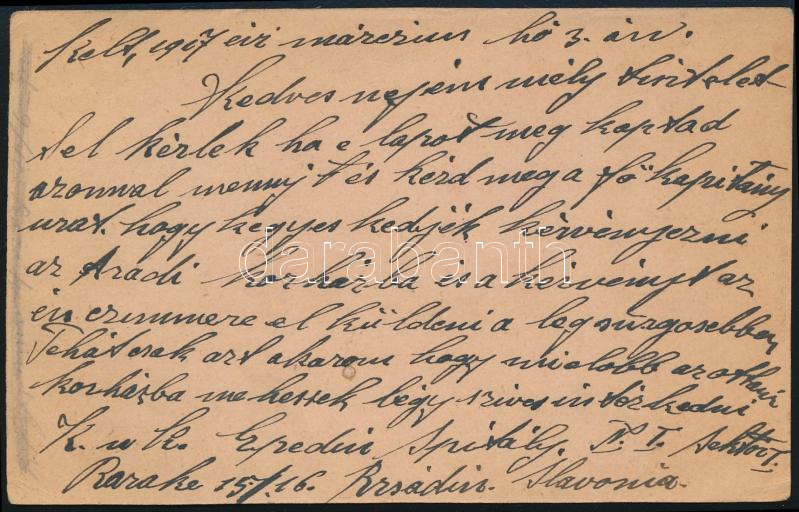 Kelt, 1917 évi márczius hó 3. án.
Kedves nejem mély tisztelet
tel kérlek ha e lapot meg kaptad
azonnal mennyj t és kérd meg a fő kapitány
urat. hogy kegyes kedjék kérvényezni
az Aradi korházba és a kérvényt az
én czimmere el küldeni a legsürgosebben
Tehát csak azt akarom hogy mielobb az otthoni
korházba mehessek légy szives intézkedni
K. u K. Epedin Spitály. N. I. Sektor I.
Barake 15/16. Brsádin. Slavonia.
darabanth